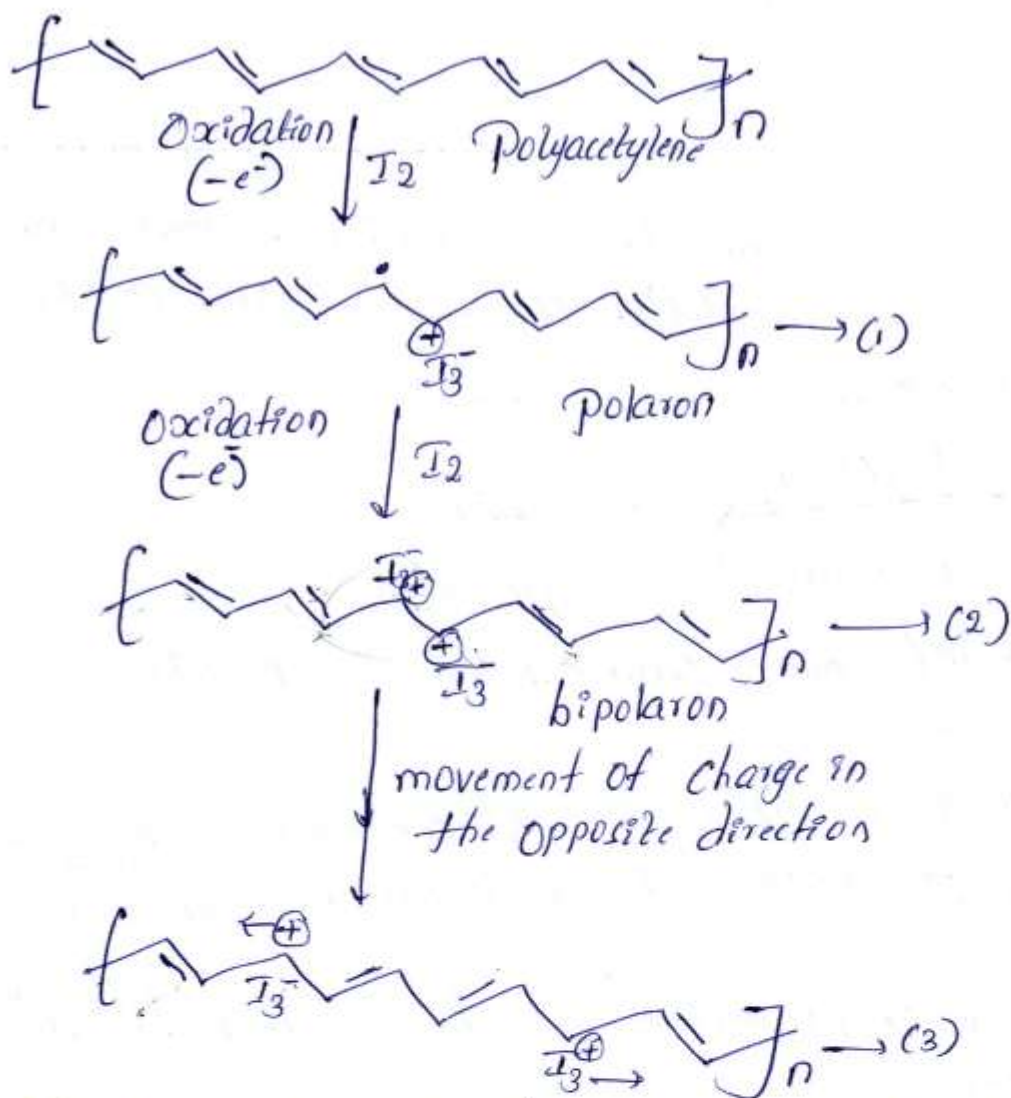 n
Oxidation
(-e⁻)
I2
Polyacetylene
n → (1)
⊕
I3⁻
Polaron
Oxidation
(-e⁻)
I2
I3⁻
⊕
n → (2)
⊕
I3⁻
bipolaron
movement of charge in
the opposite direction
← ⊕
I3⁻
n → (3)
I3⁻ ⊕ →